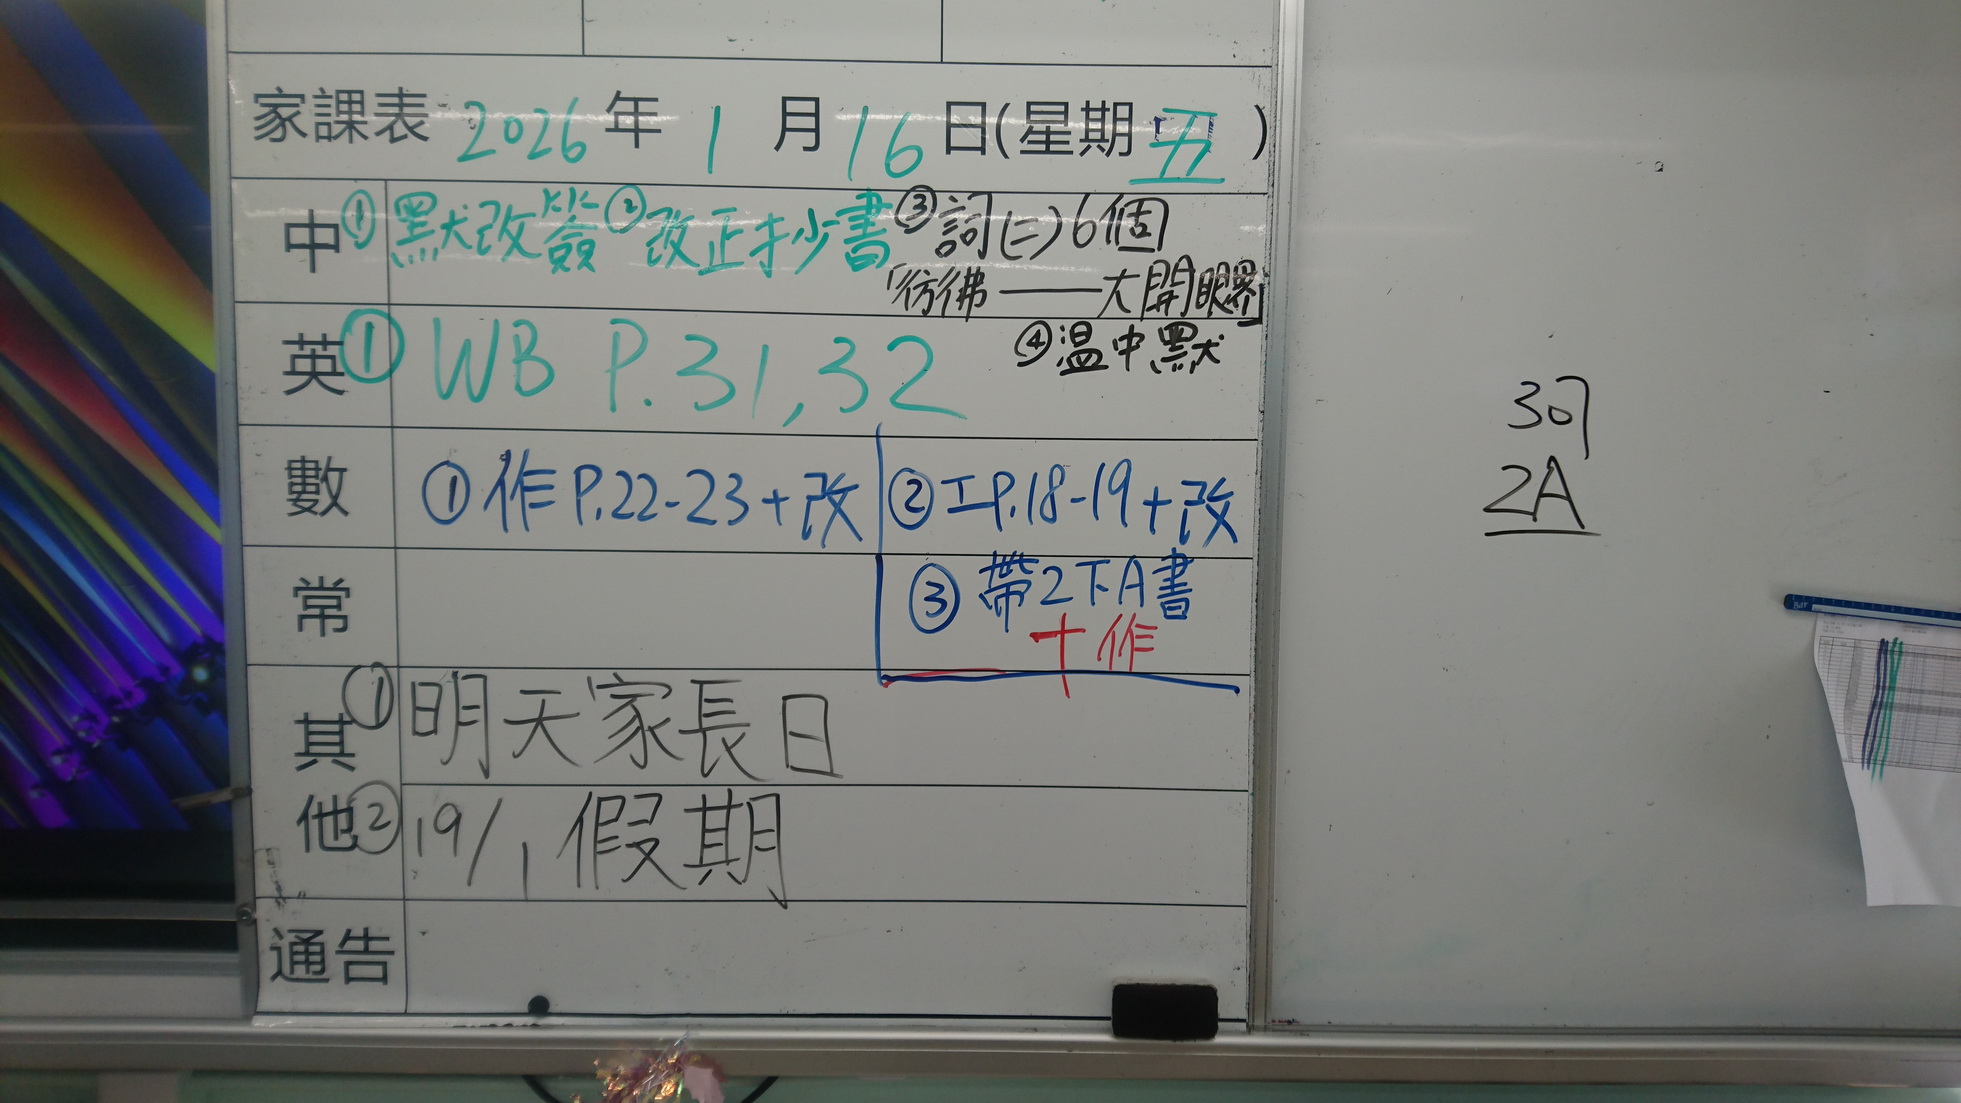 家課表 2026年 1月16日(星期五)
中 ①默改簽 ②改正抄書 ③詞(二)6個
「彷彿——大開眼界」
④温中默
英 ① WB P.31,32
數 ①作P.22-23+改 ②工P.18-19+改
常 ③帶2下A書
+作
其他 ①明天家長日
②19/1 假期
通告
2A